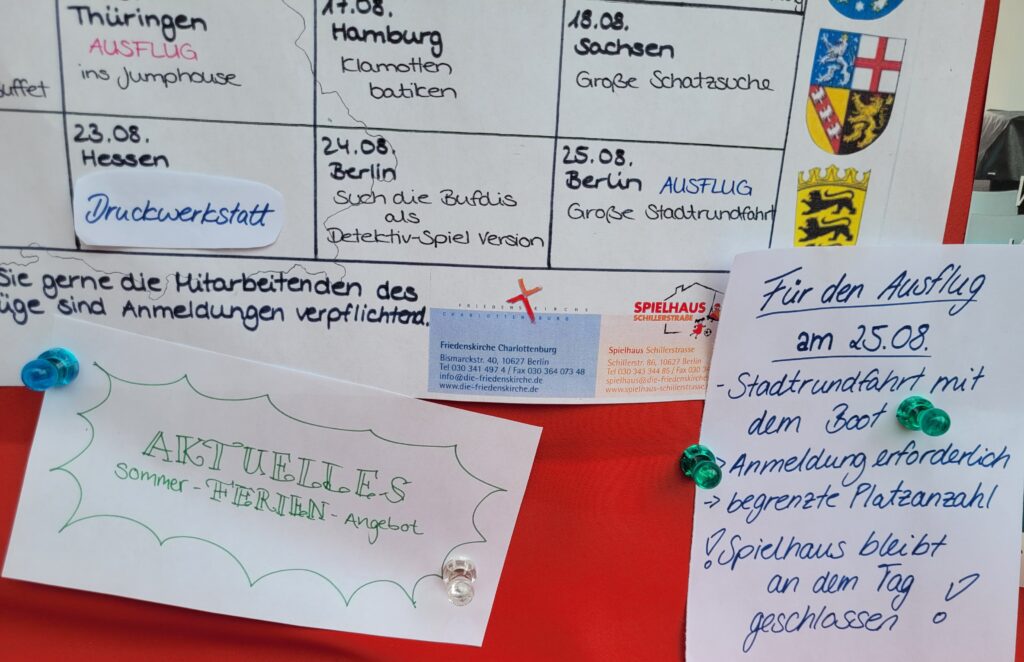 Thüringen
AUSFLUG
ins Jumphouse
17.08.
Hamburg
Klamotten
batiken
18.08.
Sachsen
Große Schatzsuche
23.08.
Hessen
Druckwerkstatt
24.08.
Berlin
Such die Bufdis
als
Detektiv-Spiel Version
25.08.
Berlin AUSFLUG
Große Stadtrundfahrt
Sie gerne die Mitarbeitenden des
sind Anmeldungen verpflichtend.
FRIEDENSKIRCHE
CHARLOTTENBURG
Friedenskirche Charlottenburg
Bismarckstr. 40, 10627 Berlin
Tel 030 341 497 4 / Fax 030 364 073 48
info@die-friedenskirche.de
www.die-friedenskirche.de
SPIELHAUS
SCHILLERSTRAßE
Spielhaus Schillerstrasse
Schillerstr. 86, 10627 Berlin
Tel 030 343 344 85 / Fax 030
spielhaus@die-friedenskirche
www.spielhaus-schillerstrasse
AKTUELLES
Sommer-FERIEN-Angebot
Für den Ausflug
am 25.08.
- Stadtrundfahrt mit
dem Boot
-> Anmeldung erforderlich
-> begrenzte Platzanzahl
! Spielhaus bleibt
an dem Tag
geschlossen !